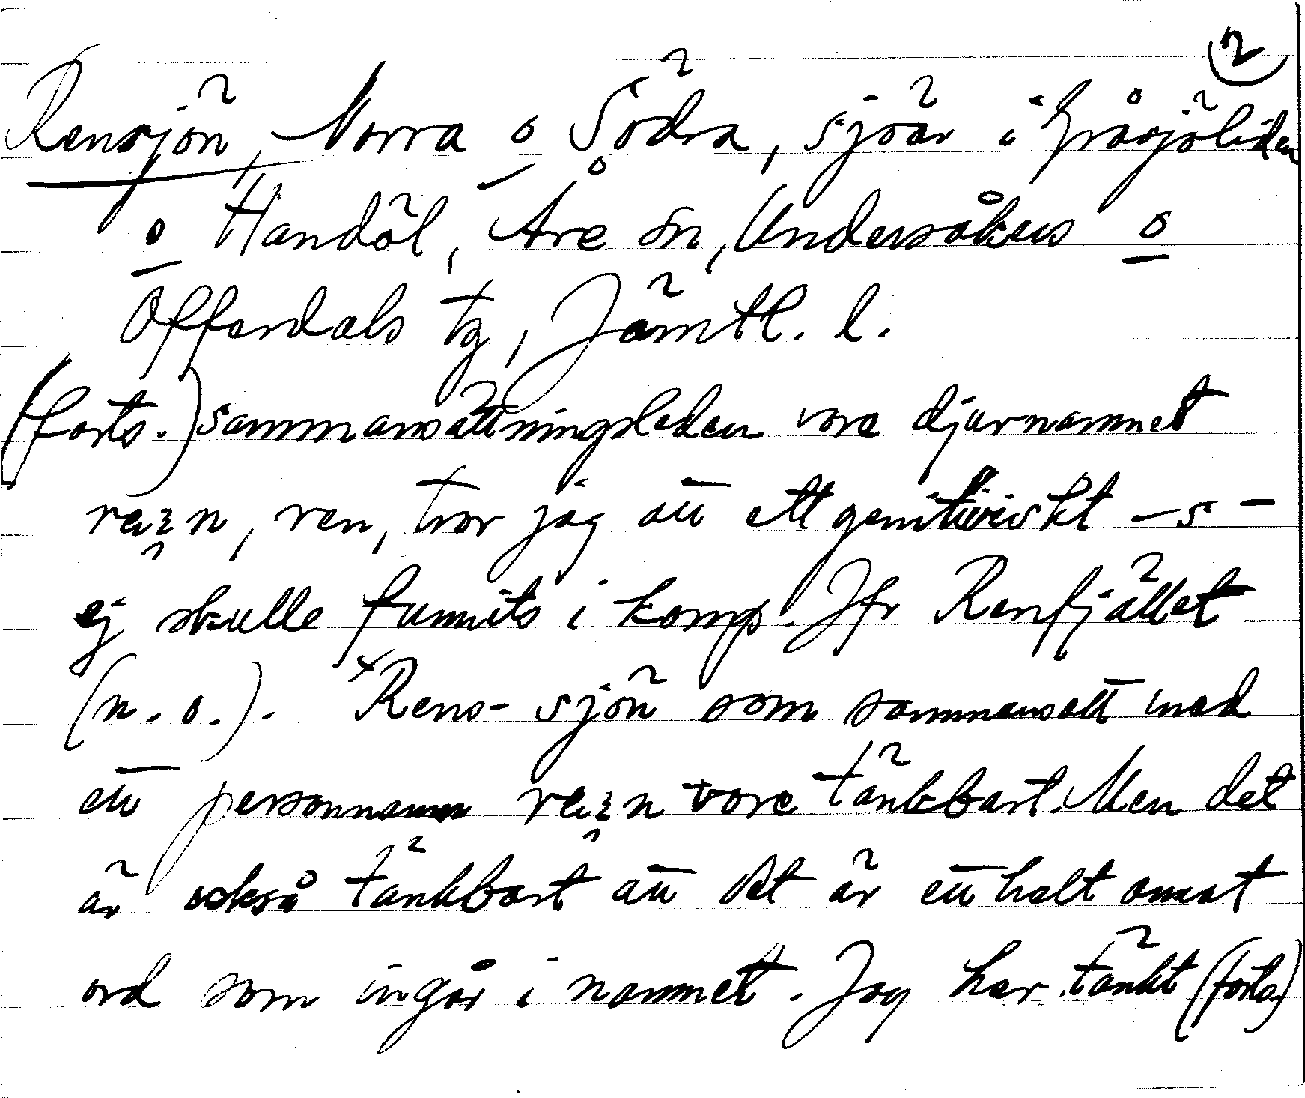 2
Rensjön, Norra o Södra, sjöar i Gråsjöliden
o Handöl, Åre sn, Undersåkers o
Offerdals tg, Jämtl. l.
(forts.) sammansättningsleden vore djurnamnet
ren, tror jag att ett genitiviskt -s-
ej skulle funnits i komp. Jfr Renfjället
(n. o.). *Rens-sjön som sammansatt med
ett personnamn vore tänkbart. Men det
är också tänkbart att det är ett helt annat
ord som ingår i namnet. Jag har tänkt (forts)